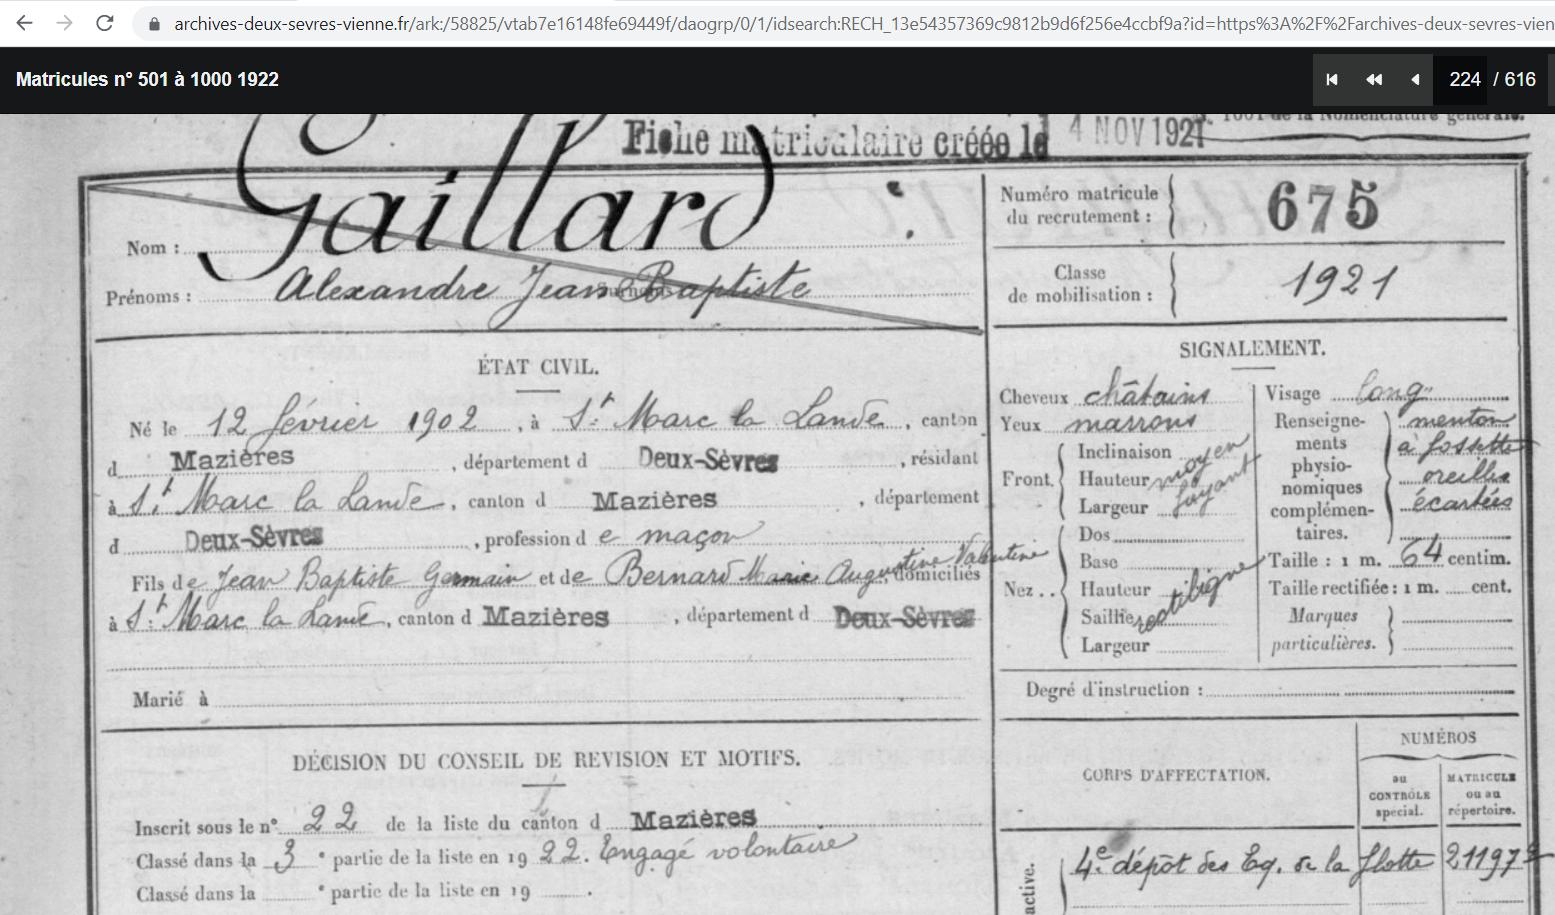 archives-deux-sevres-vienne.fr/ark:/58825/vtab7e16148fe69449f/daogrp/0/1/idsearch:RECH_13e54357369c9812b9d6f256e4ccbf9a?id=https%3A%2F%2Farchives-deux-sevres-vien
Matricules n° 501 à 1000 1922
224 / 616
Fiche matriculaire créée le 4 NOV 1921
de la Nomenclature générale.
Nom : Gaillard
Prénoms : Alexandre Jean Baptiste
Numéro matricule du recrutement : 675
Classe de mobilisation : 1921
ÉTAT CIVIL.
Né le 12 février 1902, à St Marc la Lande, canton
d Mazières, département d Deux-Sèvres, résidant
à St Marc la Lande, canton d Mazières, département
d Deux-Sèvres, profession d e maçon
Fils de Jean Baptiste Germain et de Bernard Marie Augustine Valentine domiciliés
à St Marc la Lande, canton d Mazières, département d Deux-Sèvres
Marié à
SIGNALEMENT.
Cheveux châtains
Yeux marrons
Front.
Inclinaison
Hauteur moyen
Largeur fuyant
Nez . .
Dos
Base
Hauteur
Saillie rectiligne
Largeur
Visage long
Renseignements physionomiques complémentaires.
menton
à fossette
oreilles
écartées
Taille : 1 m. 64 centim.
Taille rectifiée : 1 m. cent.
Marques particulières.
Degré d'instruction :
DÉCISION DU CONSEIL DE REVISION ET MOTIFS.
Inscrit sous le n° 22 de la liste du canton d Mazières
Classé dans la 3 e partie de la liste en 1922. Engagé volontaire
Classé dans la e partie de la liste en 19 .
CORPS D'AFFECTATION.
NUMÉROS
au CONTRÔLE spécial.
MATRICULE ou au répertoire.
active.
4e dépôt des Eq. de la flotte 21197